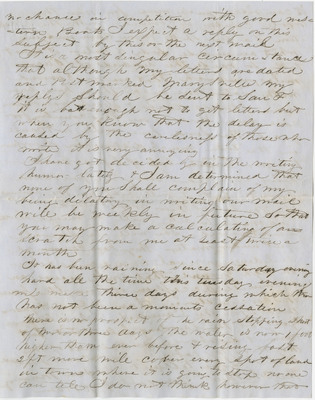 no chance in competition with good
Books I expect a reply on this
subject by this or the next mail
It is a most singular circumstance
that although my letters are dated
and Post marked
reply should be sent to Santa
Fe bad enough not to get letters but
when you know that the delay is
caused by the carelessness of those who
write it is very annoying
I have got decidedly in the writing
humor lately & I am determined that
none of you shall complain of my
being dilatory in writing our mail
will be weekly in future so that
you may make a calculation of one
scratch from me at least twice a
month
It has been raining since Saturday evening
hard all the time this Tuesday evening
making three days during which there
has not been a moments cessation
There is no prospect of the rain stopping short
of two or three days The water is now 1 foot
higher than ever before & raising fast
3 ft more will cover every spot of land
in town where it is going to stop no one
can tell I do not think however that